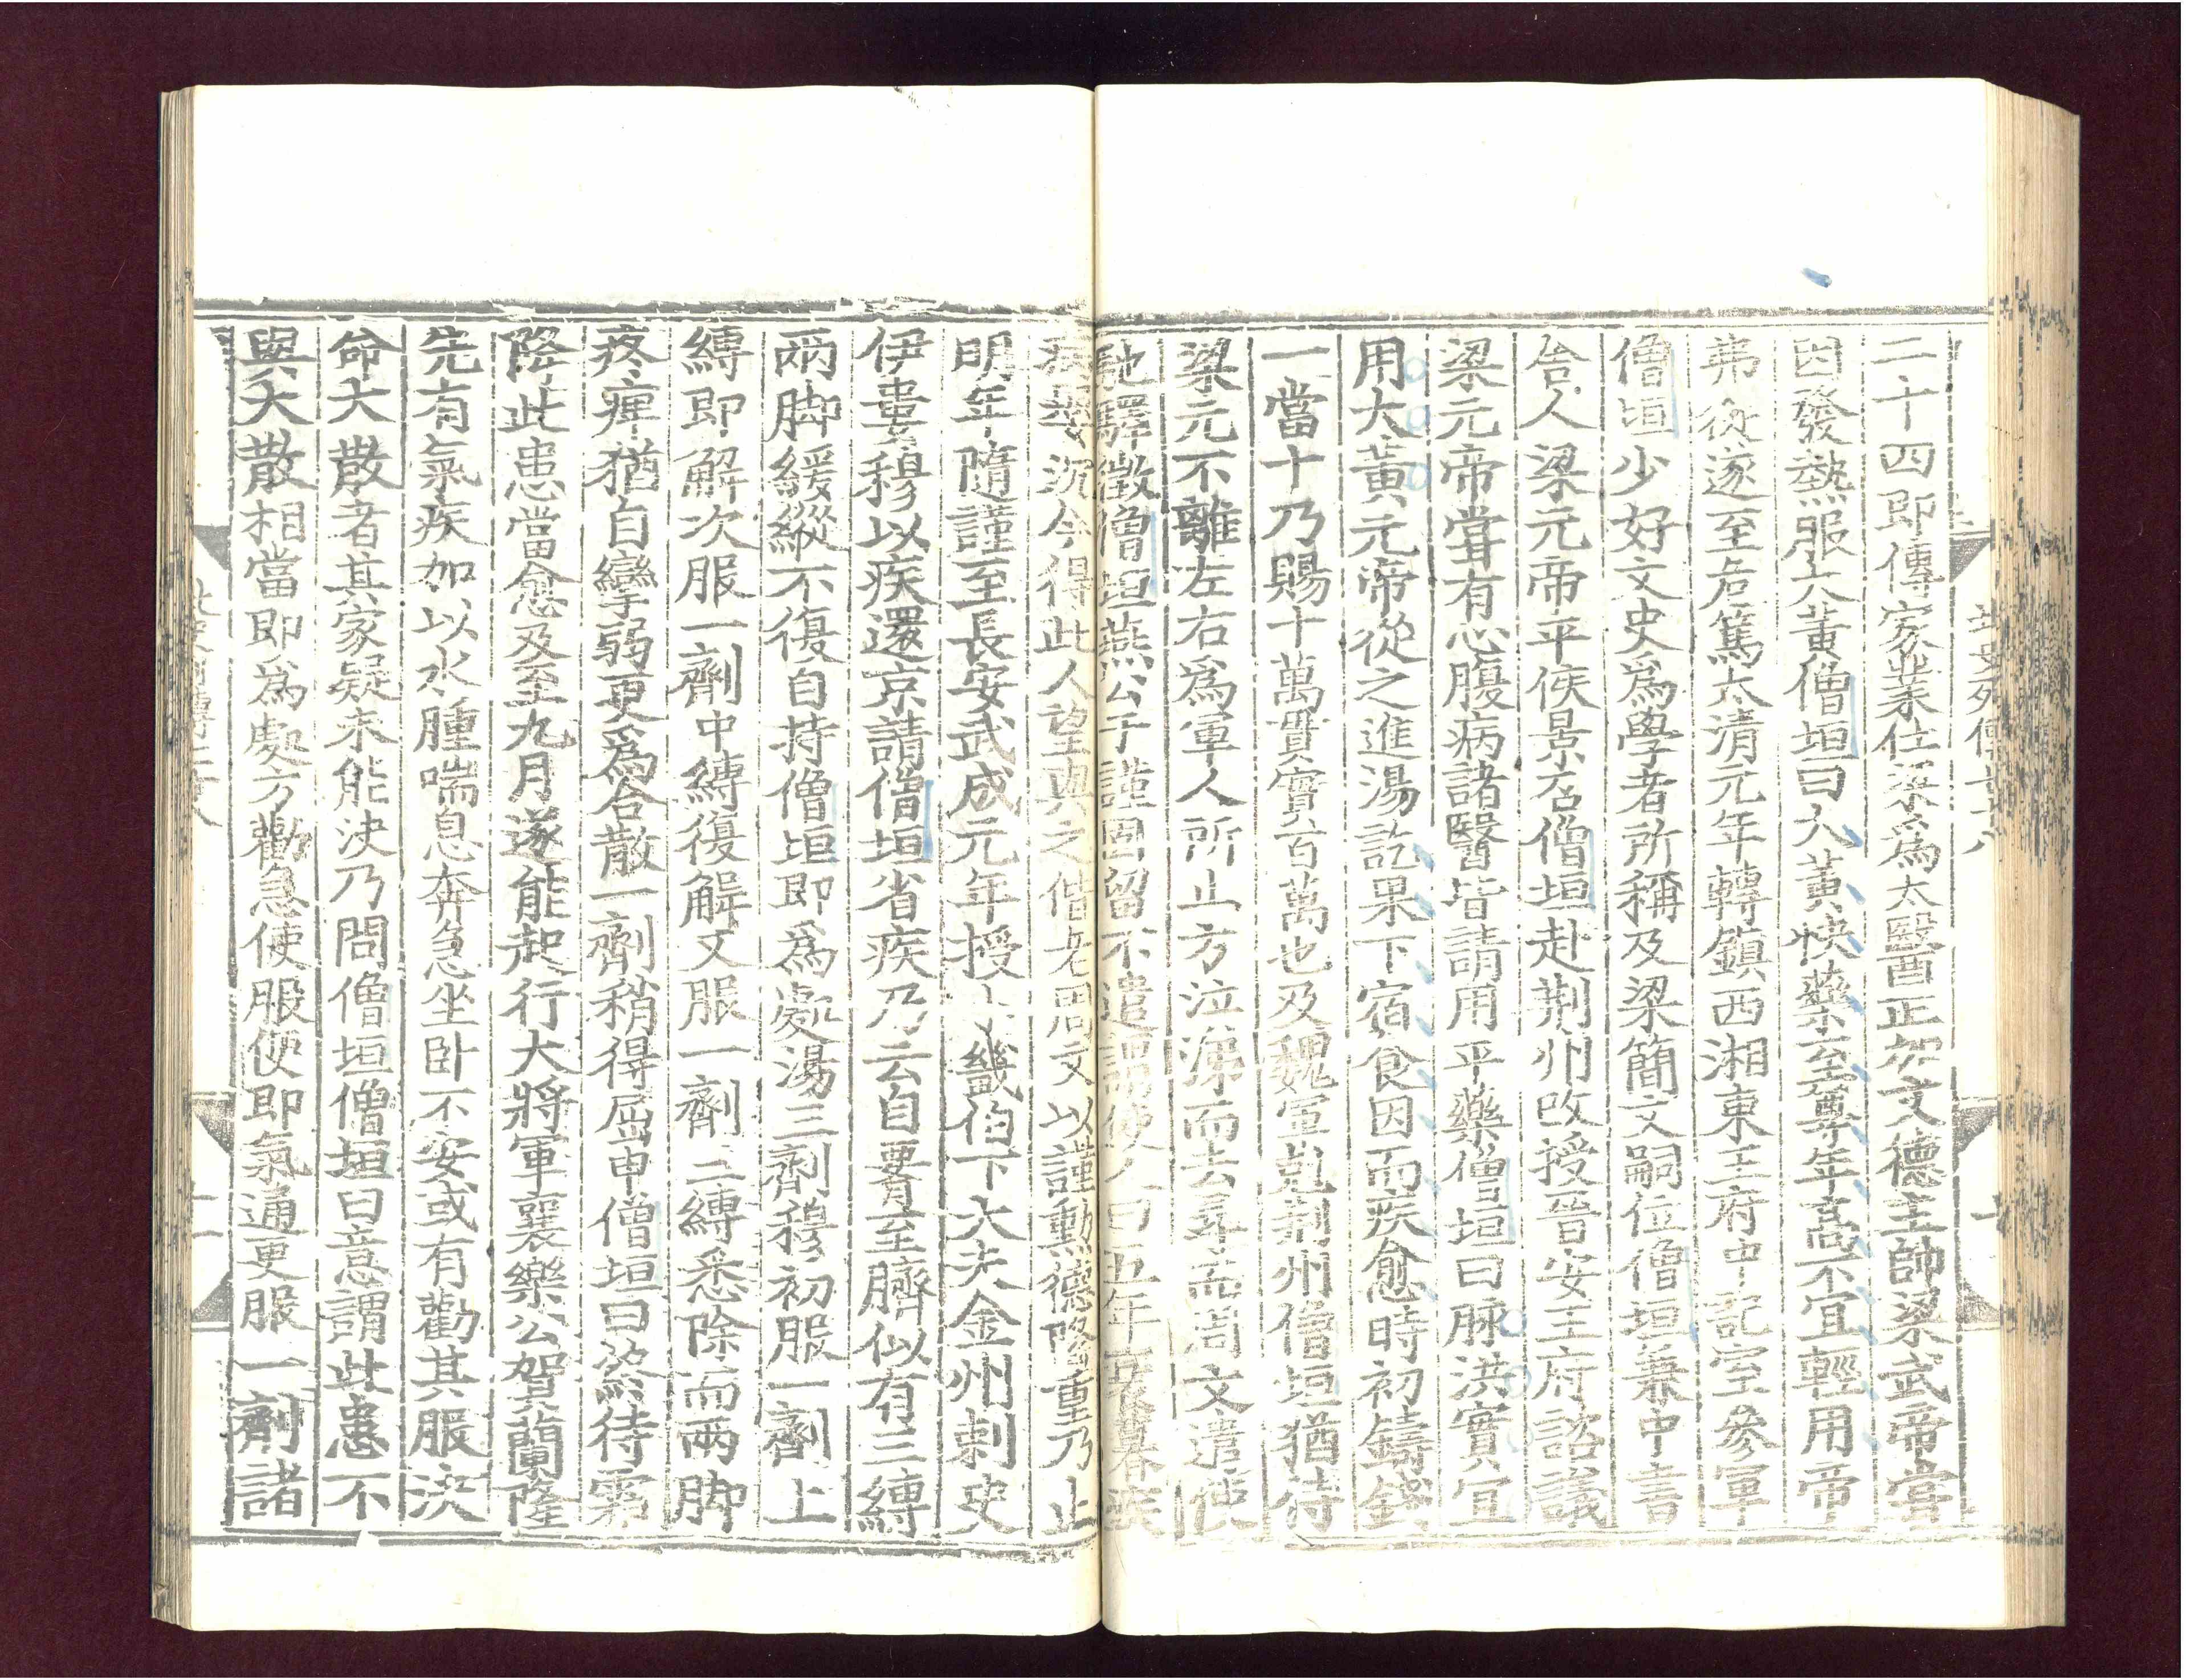 二十四即傳家業仕梁爲太醫正加文德主帥梁武帝嘗
因發熱服大黃僧垣曰大黃快藥至尊年高不宜輕用帝
弗從遂至危篤太清元年轉鎮西湘東王府中記室參軍
僧垣少好文史爲學者所稱及梁簡文嗣位僧垣兼中書
舍人梁元帝平侯景召僧垣赴荆州改授晉安王府諮議
梁元帝嘗有心腹病諸醫皆請用平藥僧垣曰脉洪實宜
用大黃元帝從之進湯訖果下宿食因而疾愈時初鑄錢
一當十乃賜十萬貫實百萬也及魏軍剋荆州僧垣猶侍
梁元不離左右爲軍人所止方泣涕而去尋而周文遣使
馳驛徵僧垣燕公于謹固留不遣謂使人曰吾年衰暮疹
疾嬰沉今得此人望與之偕老周文以謹勳德隆重乃止
明年隨謹至長安武成元年授小畿伯下大夫金州刺史
伊婁穆以疾還京請僧垣省疾乃云自要至臍似有三縛
兩脚緩縱不復自持僧垣即爲處湯三劑穆初服一劑上
縛即解次服一劑中縛復解又服一劑三縛悉除而兩脚
疼痺猶自攣弱更爲合散一劑稍得屈申僧垣曰終待霜
降此患當愈及至九月遂能起行大將軍襄樂公賀蘭隆
先有氣疾加以水腫喘息奔急坐卧不安或有勸其服決
命大散者其家疑未能決乃問僧垣僧垣曰意謂此患不
與大散相當即爲處方勸急使服便即氣通更服一劑諸